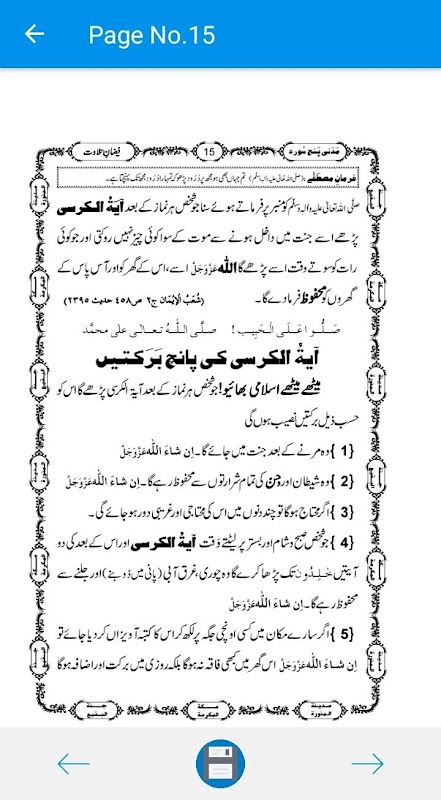 Page No.15
مَدَنی پنج سورہ
15
فیضانِ تلاوت
فرمانِ مصطَفٰے : (صلی اللہ تعالیٰ علیہ والہ وسلم) تم جہاں بھی ہو مجھ پر دُرُود پڑھو کہ تمہارا دُرُود مجھ تک پہنچتا ہے۔
صلی اللہ تعالیٰ علیہ والہ وسلم کو منبر پر فرماتے ہوئے سنا جو شخص ہر نماز کے بعد آیۃُ الکرسی
پڑھے اسے جنت میں داخل ہونے سے موت کے سوا کوئی چیز نہیں روکتی اور جو کوئی
رات کو سوتے وقت اسے پڑھے گا اللہ عَزَّوَجَلَّ اسے، اس کے گھر کو اور آس پاس کے
گھروں کو محفوظ فرما دے گا۔ (شُعَبُ الْاِیْمَان ج۲ ص۴۵۸ حدیث ۲۳۹۵)
صَلُّوا عَلَی الْحَبِیب ! صلَّی اللہُ تعالٰی علٰی محمَّد
آیۃُ الکرسی کی پانچ بَرَکتیں
میٹھے میٹھے اسلامی بھائیو! جو شخص ہر نماز کے بعد آیۃ الکرسی پڑھے گا اس کو
حسب ذیل برکتیں نصیب ہوں گی
{1} وہ مرنے کے بعد جنت میں جائے گا۔ اِن شاءَ اللہ عَزَّوَجَلَّ
{2} وہ شیطان اور جن کی تمام شرارتوں سے محفوظ رہے گا۔ اِن شاءَ اللہ عَزَّوَجَلَّ
{3} اگر محتاج ہوگا تو چند دنوں میں اس کی محتاجی اور غریبی دور ہو جائے گی۔
{4} جو شخص صبح و شام اور بستر پر لیٹتے وَقت آیۃُ الکرسی اور اس کے بعد کی دو
آیتیں خٰلِدُونَ تک پڑھا کرے گا وہ چوری، غرق آبی (پانی میں ڈوبنے) اور جلنے سے
محفوظ رہے گا۔ اِن شاءَ اللہ عَزَّوَجَلَّ
{5} اگر سارے مکان میں کسی اونچی جگہ پر لکھ کر اس کا کتبہ آویزاں کر دیا جائے تو
اِن شاءَ اللہ عَزَّوَجَلَّ اس گھر میں کبھی فاقہ نہ ہوگا بلکہ روزی میں برکت اور اضافہ ہوگا